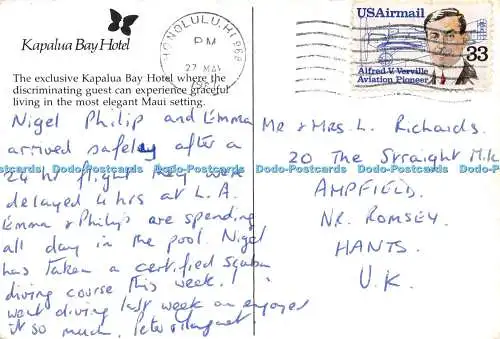 Kapalua Bay Hotel
The exclusive Kapalua Bay Hotel where the
discriminating guest can experience graceful
living in the most elegant Maui setting.
HONOLULU, HI
PM
27 MAY
USAirmail
33
Alfred V. Verville
Aviation Pioneer
Nigel Philip and Emma
arrived safely after a
24 hr flight they were
delayed 4 hrs at L.A.
Emma & Philip are spending
all day in the pool. Nigel
has taken a certified scuba
diving course this week.
went diving last week an enjoyed
it so much. Peter & Margaret
Mr & Mrs. L. Richards.
20 The Straight Mile
AMPFIELD.
NR. ROMSEY.
HANTS.
U.K.
Dodo-Postcards Dodo-Postcards Dodo-Postcards Dodo-Postcards